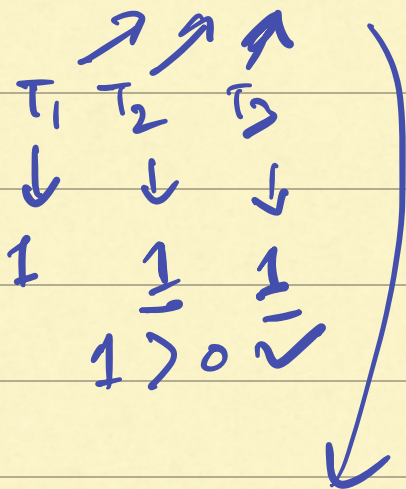 T1 T2 T3
1 1 1
1 > 0 ✓